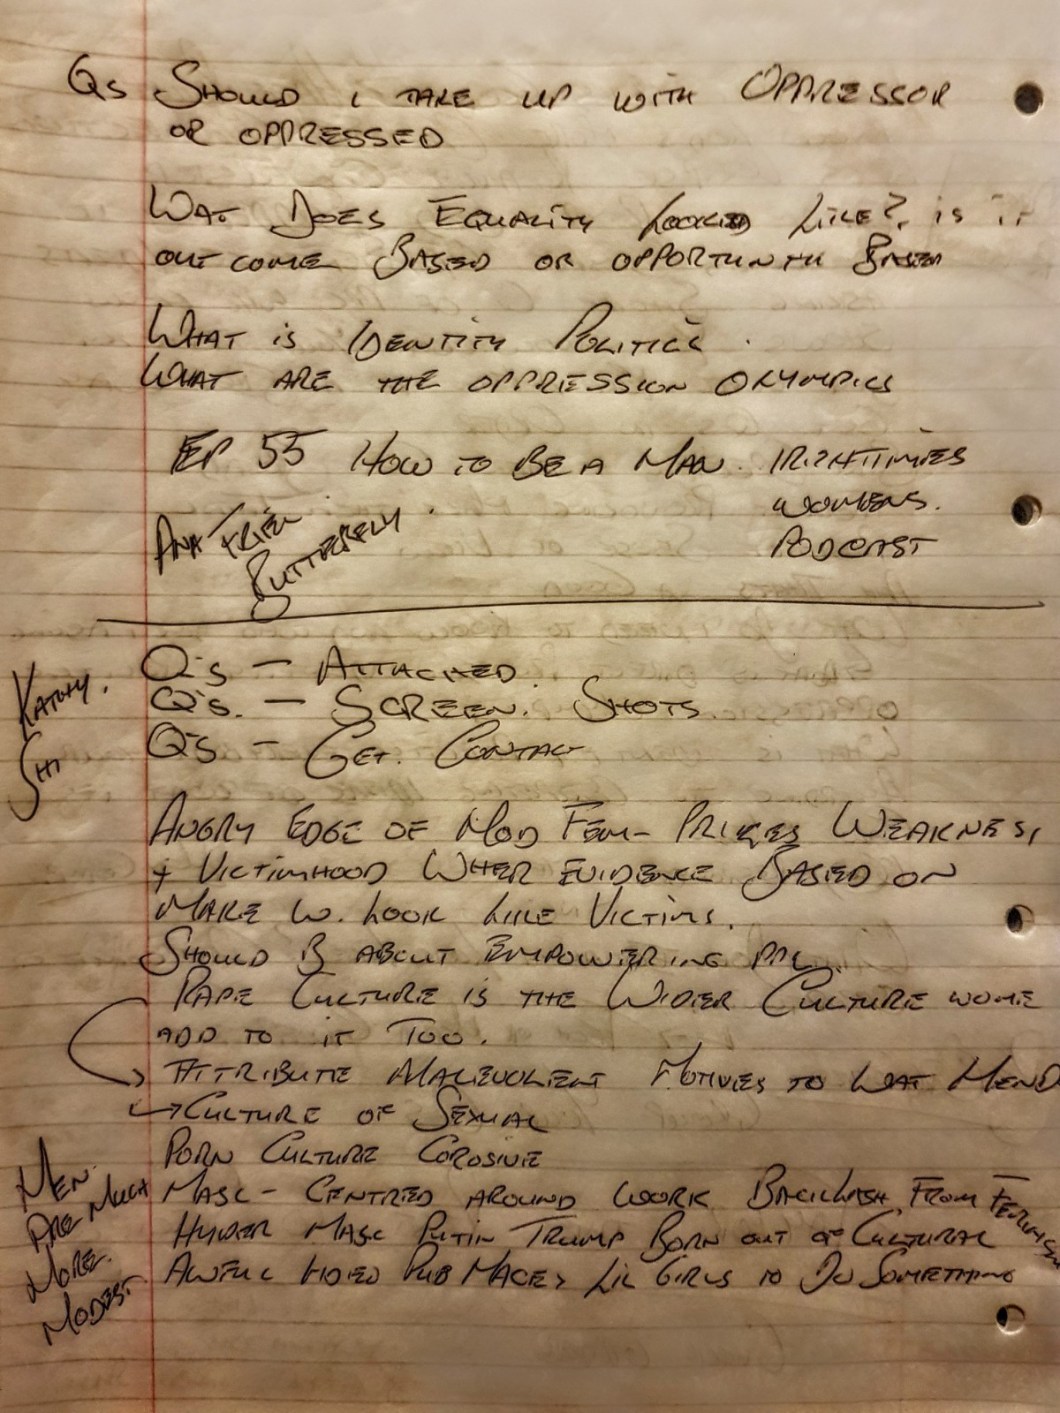 Qs SHOULD i TAKE UP WITH OPPRESSOR
OR OPPRESSED
WAT DOES EQUALITY LOOKED LIKE? is iT
OUTCOME BASED OR OPPORTUNITY BASED
WHAT is IDENTITY POLITICS.
WHAT ARE THE OPPRESSION OLYMPICS
EP 55 HOW TO BE A MAN. IRISHTIMES
WOMENS.
PODCAST
ANA FRIEL
BUTTERFLY.
Q's - ATTACHED.
Q's. - SCREEN. SHOTS
Q's - GET. CONTACT
KATHY.
ANGRY EDGE OF MOD FEM- WEAKNESS
+ VICTIMHOOD WHER EVIDENCE BASED ON
MAKE W. LOOK LIKE VICTIMS.
SHOULD B ABOUT EMPOWERING PPL.
RAPE CULTURE iS THE WIDER CULTURE
ADD TO iT TOO.
ATTRIBUTE MALEVOLENT MOTIVES TO WAT MEN DO
CULTURE OF SEXUAL
PORN CULTURE COROSIVE
MASC- CENTRED AROUND WORK BACKLASH FROM FEMINISM
HYPER MASC PUTIN TRUMP BORN OUT OF CULTURAL
AWFUL LIL GIRLS TO DO SOMETHING
MEN
ARE MUCH
MORE.
MODEST